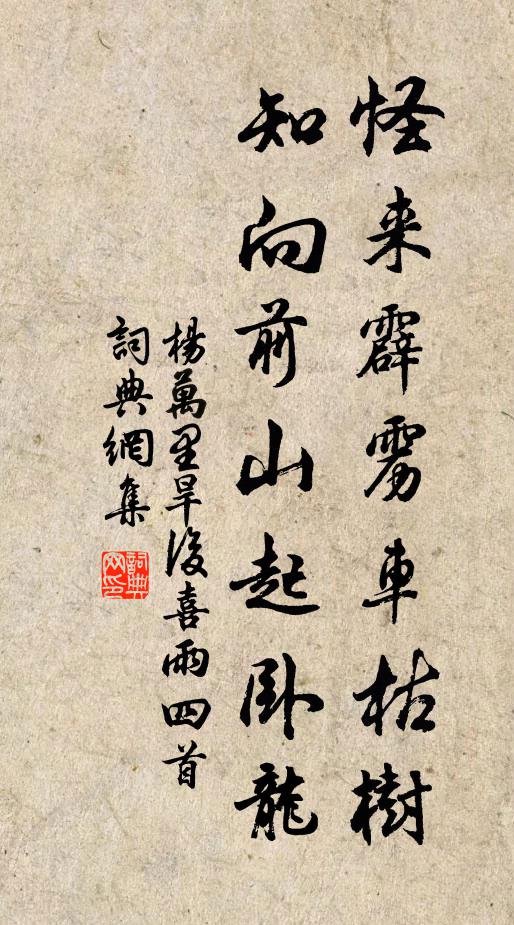 怪来霹雳車枯樹
知向前山起卧龍
楊萬里旱後喜雨四首
詞典網集
詞典网印